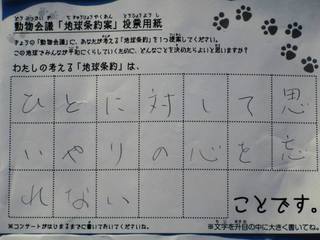 動物会議「地球条約案」投票用紙
きょうの「動物会議」に、あなたが考える「地球条約」を1つ提案してください。
この地球でみんなが平和にくらしていくために、どんなことを決めたらよいと思いますか?
わたしの考える「地球条約」は、
ひとに対して思
いやりの心を忘
れない
ことです。
※コンサートがはじまるまでに書いておいてくださいね。
※文字を升目の中に大きく書いてね。